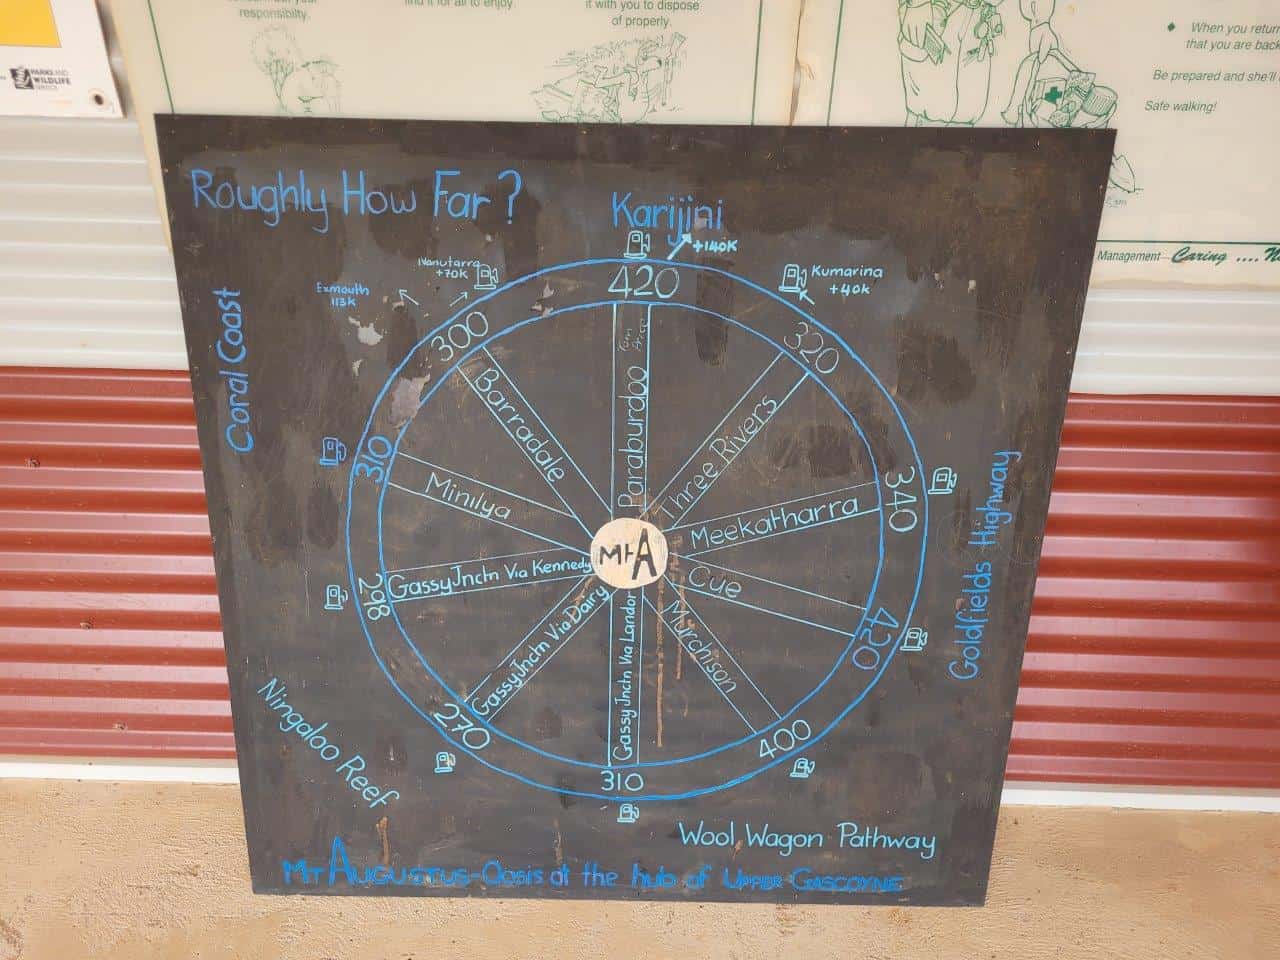 responsibilty.
find it for all to enjoy.
it with you to dispose
of properly.
When you return
that you are back
Be prepared and she'll
Safe walking!
PARKS AND
WILDLIFE
SERVICE
Management Caring ....
Roughly How Far?
Karijini
+140K
Nanutarra
+70K
Exmouth
113K
Kumarina
+40K
Coral Coast
Goldfields Highway
Ningaloo Reef
Wool Wagon Pathway
420
Paraburdoo
320
Three Rivers
340
Meekatharra
420
Cue
400
Murchison
310
Gassy Jnctn Via Landor
270
Gassy Jnctn Via Dairy
298
Gassy Jnctn Via Kennedy
310
Minilya
300
Barradale
MtA
Mt Augustus-Oasis at the hub of Upper Gascoyne